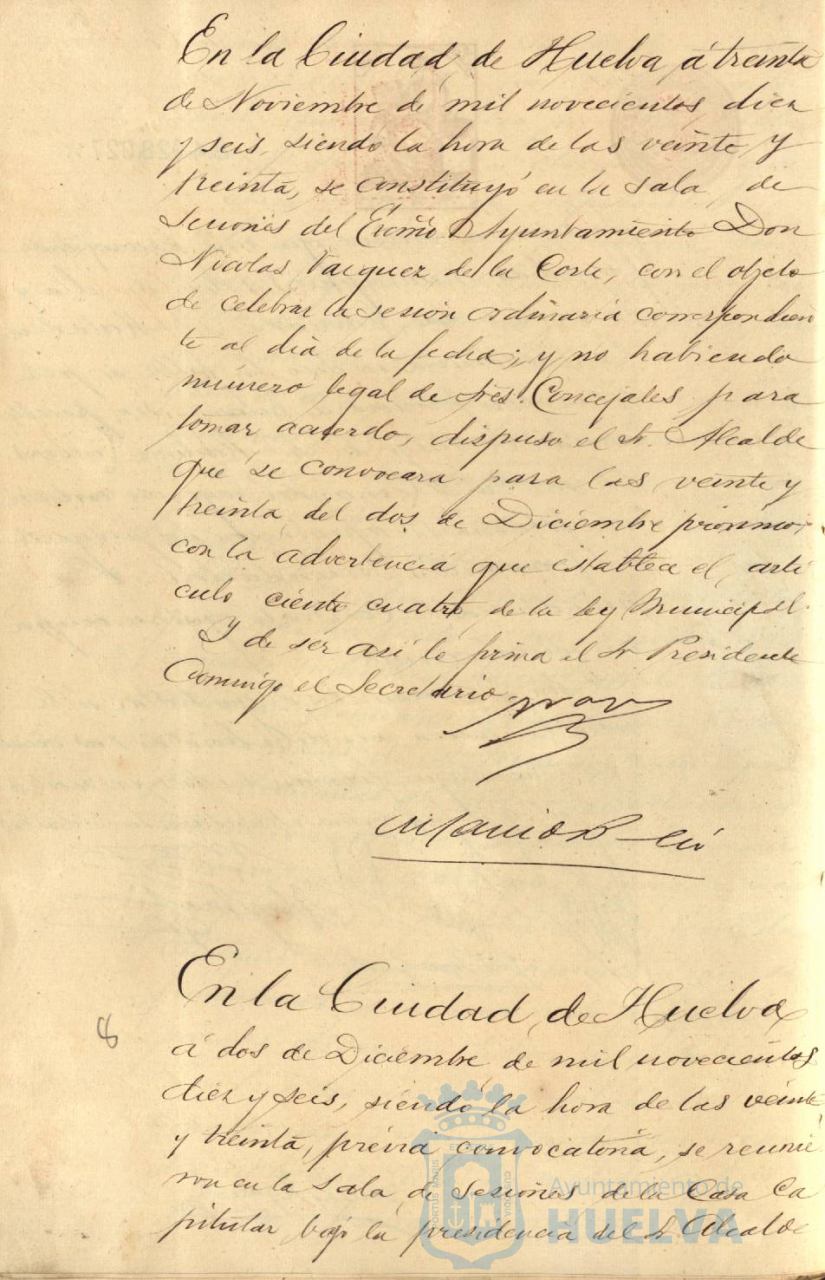 En la Ciudad de Huelva, á treinta
de Noviembre de mil novecientos diez
y seis, siendo la hora de las veinte y
treinta, se constituyó en la Sala de
Sesiones del Excmo Ayuntamiento Don
Nicolas Vazquez de la Corte, con el objeto
de celebrar la sesión ordinaria correspondien
te al dia de la fecha; y no habiendo
número legal de Sres. Concejales para
tomar acuerdo, dispuso el Sr. Alcalde
que se convocara para las veinte y
treinta del dos de Diciembre próximo,
con la advertencia que establece el arti
culo ciento cuatro de la ley Municipal.
Y de ser así lo firma el Sr Presidente
Conmigo el Secretario
En la Ciudad de Huelva
8
á dos de Diciembre de mil novecientos
diez y seis, siendo la hora de las veinte
y treinta, prévia convocatoria, se reunie
ron en la Sala de Sesiones de la Casa Ca
pitular bajo la presidencia del Sr Alcalde
Ayuntamiento de
HUELVA